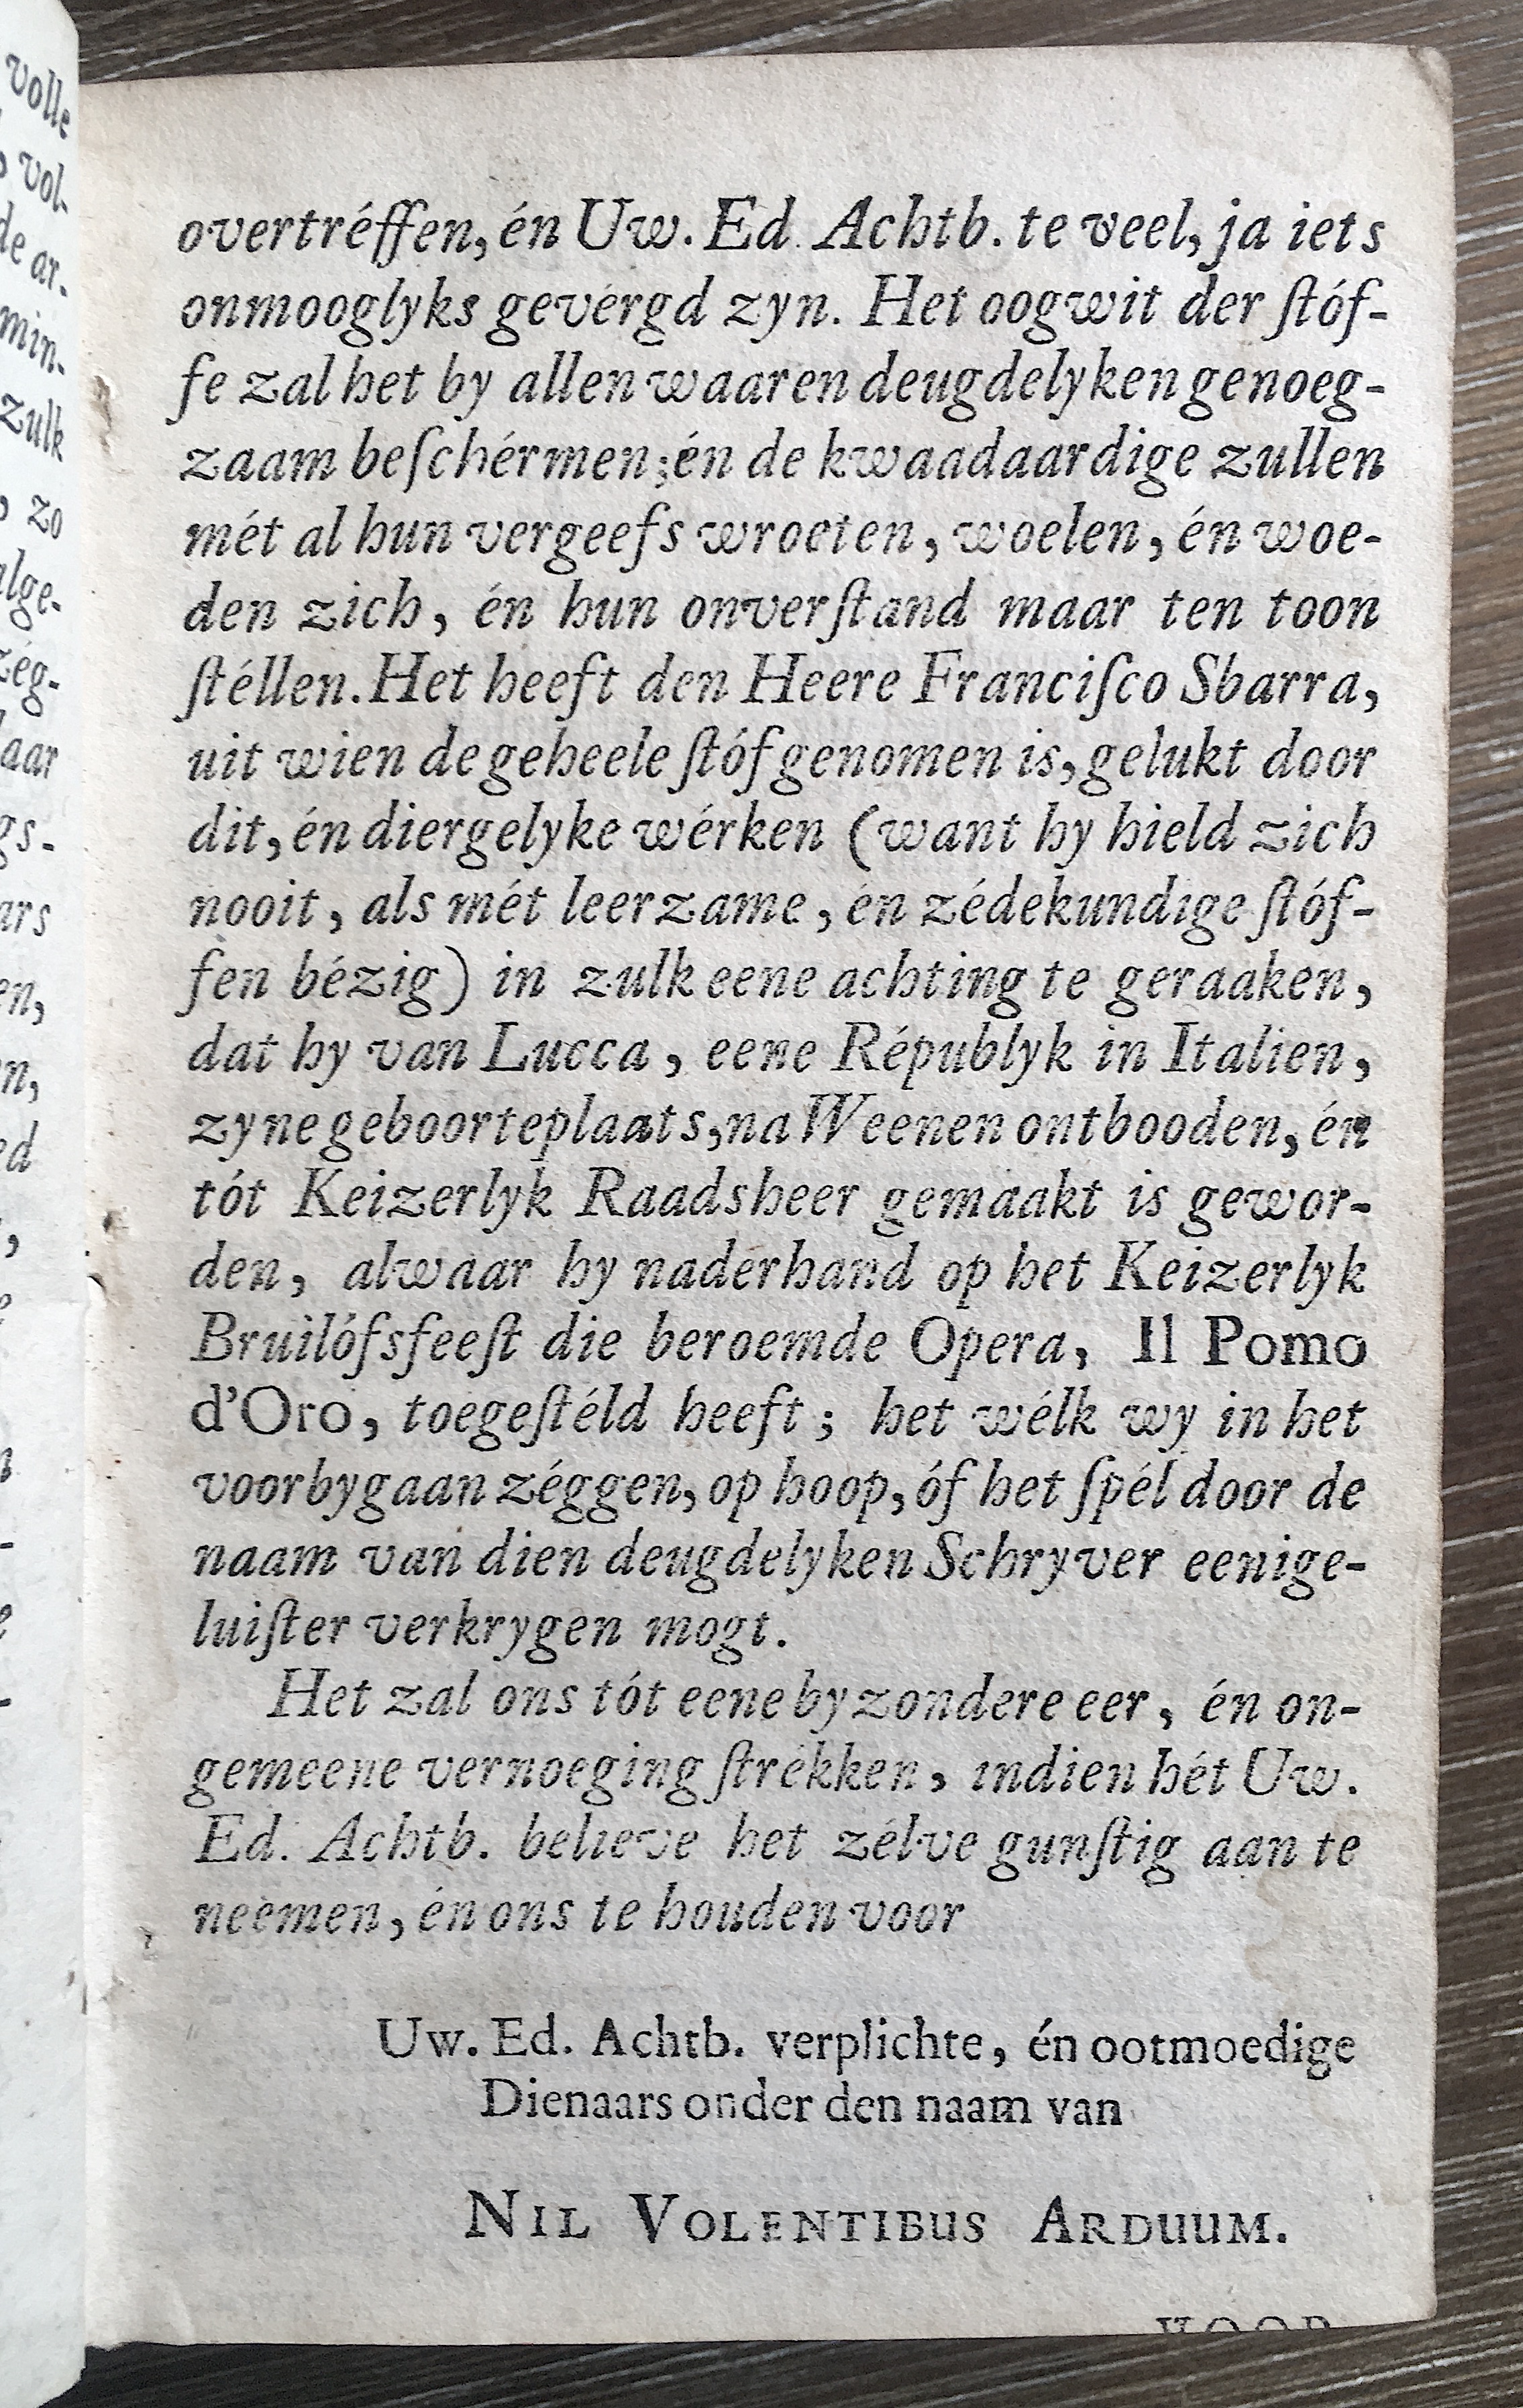 overtréffen, én Uw. Ed. Achtb. te veel, ja iets
onmooglyks gevérgd zyn. Het oogwit der ſtóf-
fe zal het by allen waaren deugdelyken genoeg-
zaam beſchérmen; én de kwaadaardige zullen
mét al hun vergeefs wroeten, woelen, én woe-
den zich, én hun onverſtand maar ten toon
ſtéllen. Het heeft den Heere Franciſco Sbarra,
uit wien de geheele ſtóf genomen is, gelukt door
dit, én diergelyke wérken (want hy hield zich
nooit, als mét leerzame, én zédekundige ſtóf-
fen bézig) in zulk eene achting te geraaken,
dat hy van Lucca, eene Républyk in Italien,
zyne geboorteplaats, na Weenen ontbooden, én
tót Keizerlyk Raadsheer gemaakt is gewor-
den, alwaar hy naderhand op het Keizerlyk
Bruilófsfeeſt die beroemde Opera, Il Pomo
d'Oro, toegeſtéld heeft; het wélk wy in het
voorbygaan zéggen, op hoop, óf het ſpél door de
naam van dien deugdelyken Schryver eenige-
luiſter verkrygen mogt.
Het zal ons tót eene byzondere eer, én on-
gemeene vernoeging ſtrékken, indien hét Uw.
Ed. Achtb. believe het zélve gunſtig aan te
neemen, én ons te houden voor
Uw. Ed. Achtb. verplichte, én ootmoedige
Dienaars onder den naam van
NIL VOLENTIBUS ARDUUM.
volle
vol-
de ar-
min-
zulk
, zo
alge-
zég-
aar
gs-
ars
en,
n,